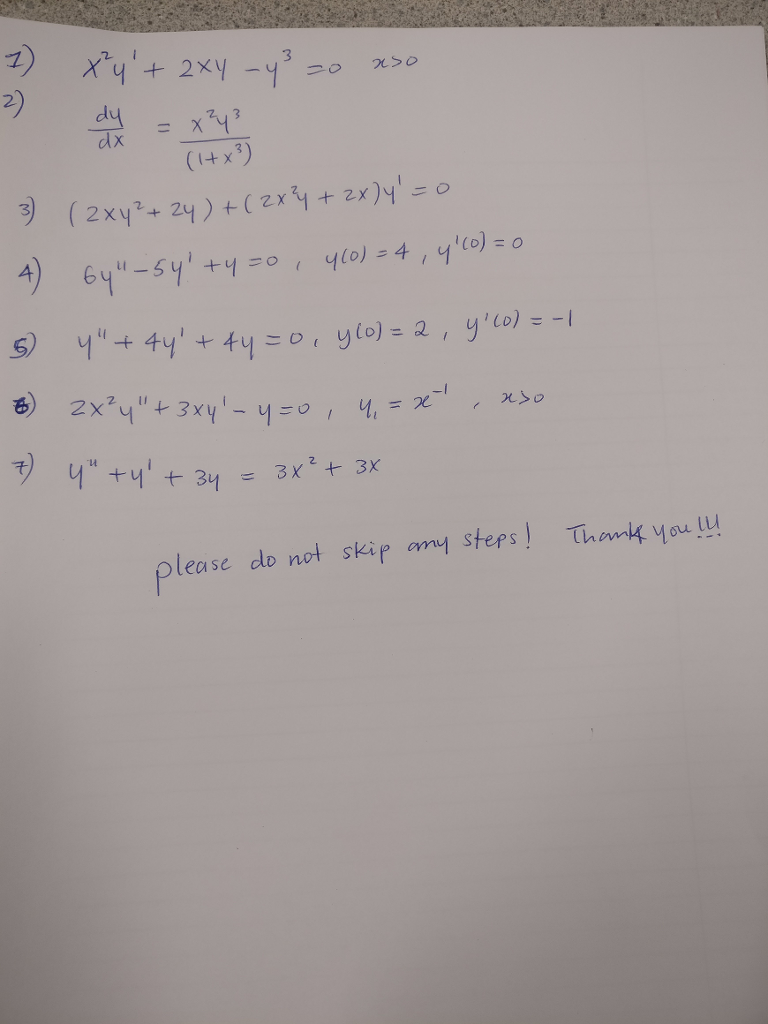 1) x²y' + 2xy - y³ = 0 x>0
2) dy/dx = x²y³/(1+x³)
3) (2xy² + 2y) + (2x²y + 2x)y' = 0
4) 6y'' - 5y' + y = 0, y(0) = 4, y'(0) = 0
5) y'' + 4y' + 4y = 0, y(0) = 2, y'(0) = -1
6) 2x²y'' + 3xy' - y = 0, y₁ = x⁻¹, x>0
7) y'' + y' + 3y = 3x² + 3x
please do not skip any steps! Thank you!!!